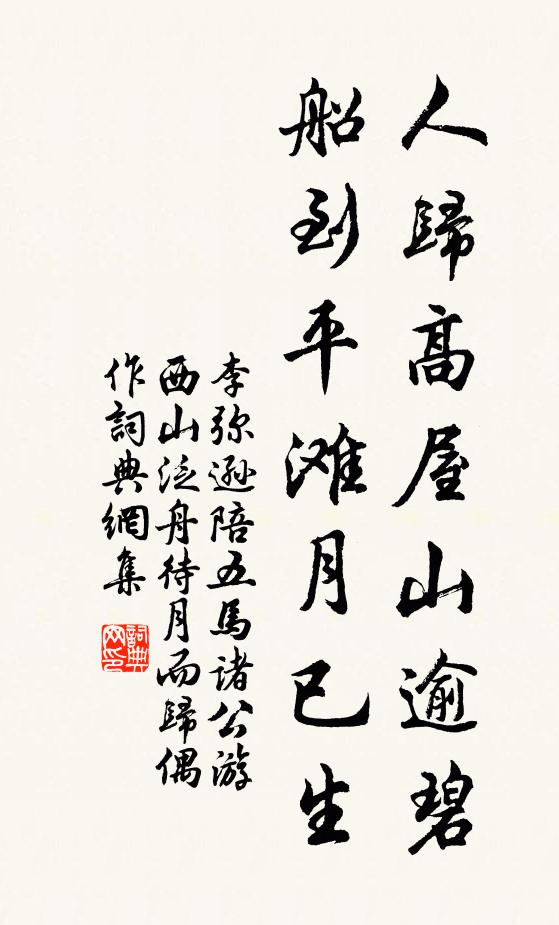 人歸高屋山逾碧
船到平滩月已生
李弥遜陪五馬諸公游
西山泛舟待月而歸偶
作詞典網集
詞典网印